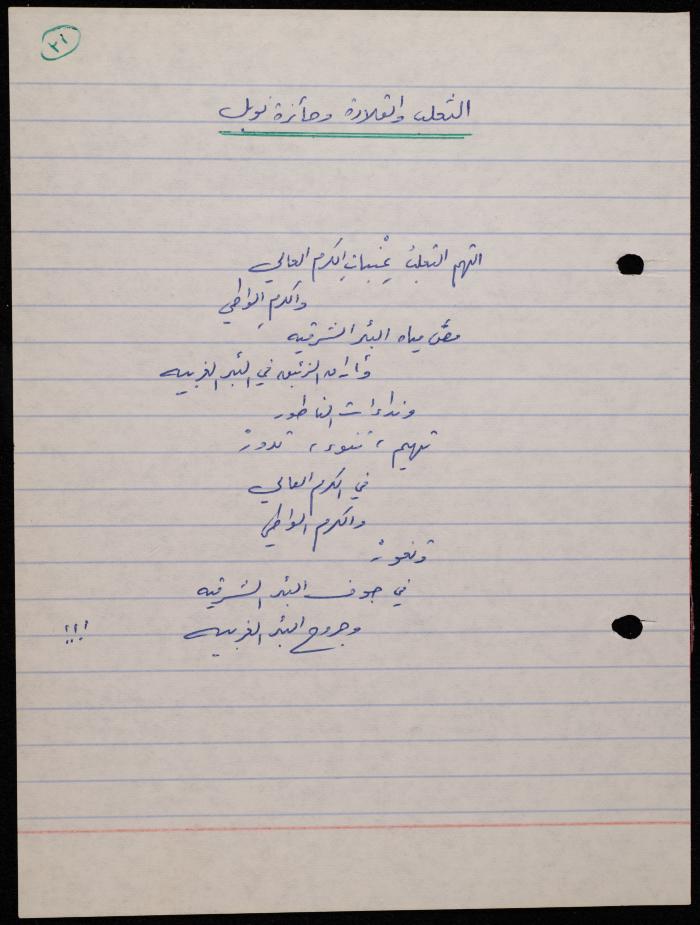 ٢١
الثعلب والقلادة وجائزة نوبل
التهم الثعلبُ عُنيباتِ الكرم العالي
والكرمِ الواطي
مصَّ مياه البئر الشرقيه
وأراق الزئبق في البئر الغربيه
ونداءات الناطور
تهيم ، تنوء ، تدورْ
في الكرم العالي
والكرم الواطي
وتغورْ
في جوف البئر الشرقيه
وجروح البئر الغربيه !!!